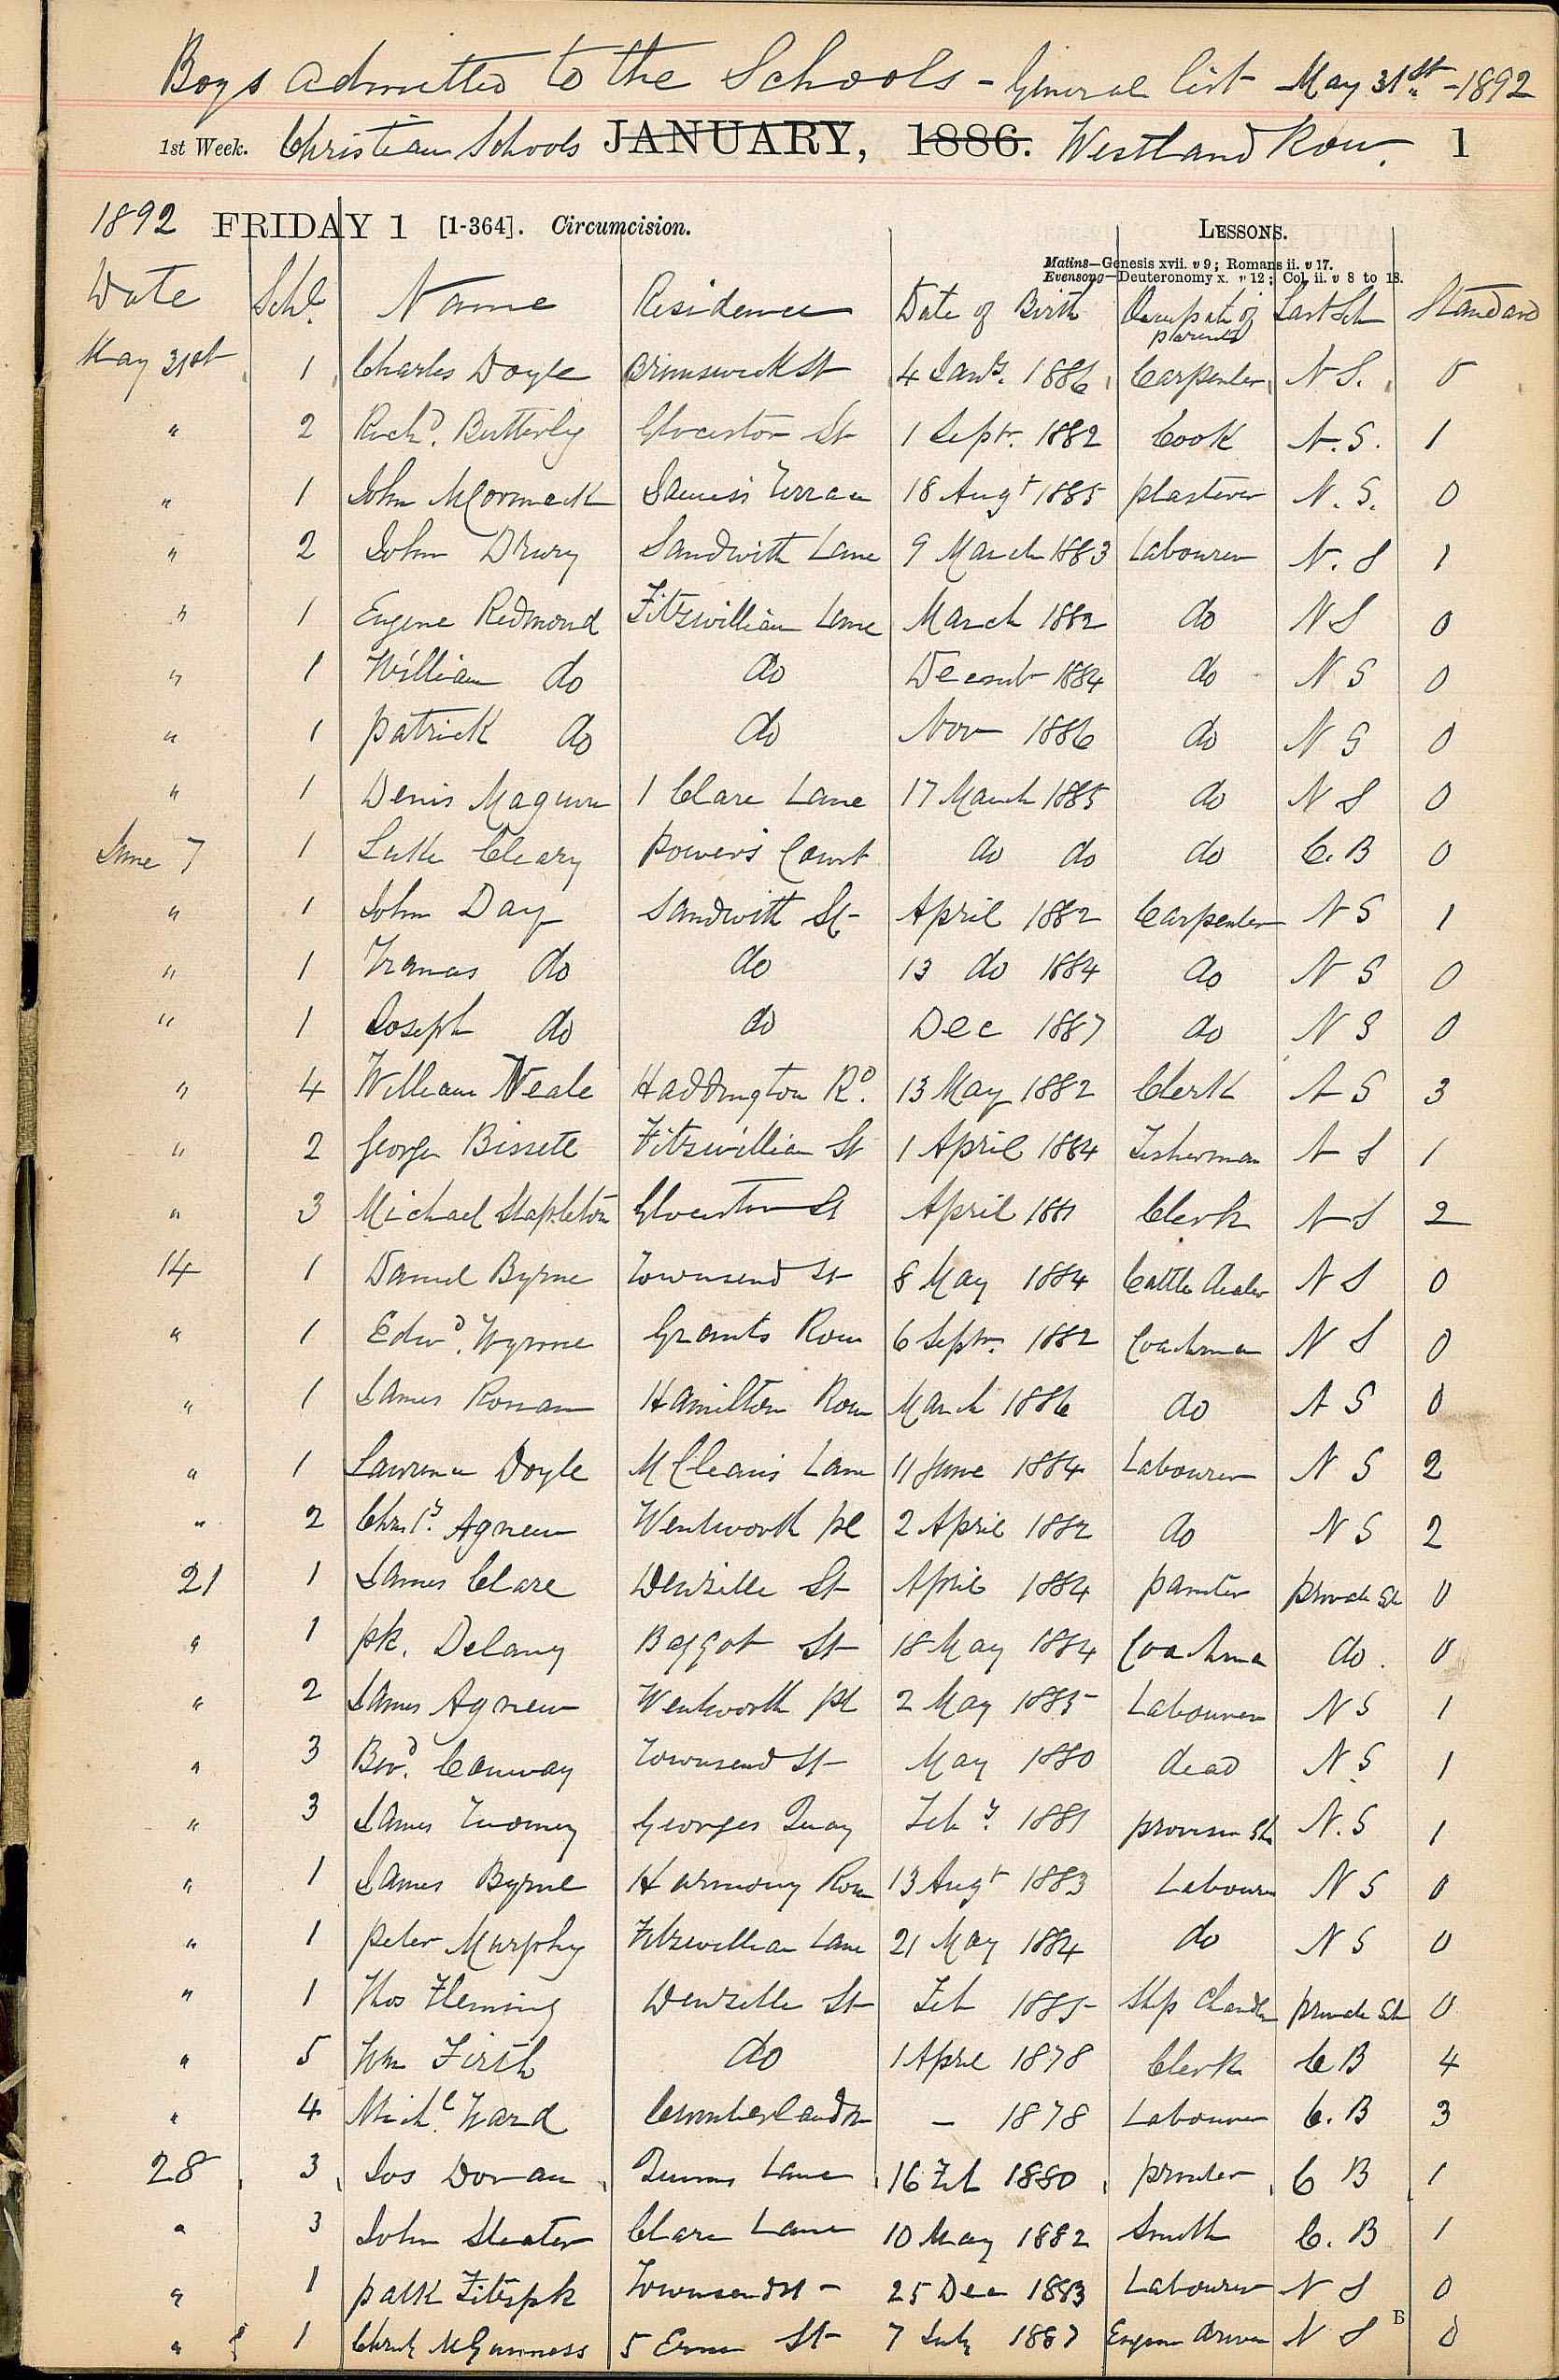 Boys admitted to the Schools - General list - May 31st - 1892
1st Week. Christian Schools JANUARY, 1886. Westland Row. 1
1892 FRIDAY 1 [1-364]. Circumcision. LESSONS.
Matins—Genesis xvii. v 9; Romans ii. v 17.
Evensong—Deuteronomy x. v 12; Col. ii. v 8 to 18.
Date Schl. Name Residence Date of Birth Occupatn of parents Last Sch Standard
May 31st 1 Charles Doyle Brunswick St 4 Jany. 1886 Carpenter N S. 0
" 2 Richd. Butterly Glocester St 1 Septr. 1882 Cook N. S. 1
" 1 John McCormack James's Terrace 18 Augt 1885 plasterer N. S. 0
" 2 John Drury Sandwith Lane 9 March 1883 Labourer N. S 1
" 1 Eugene Redmond Fitzwilliam Lane March 1882 do N S 0
" 1 William do do Decembr 1884 do N S 0
" 1 Patrick do do Nov 1886 do N S 0
" 1 Denis Maguire 1 Clare Lane 17 March 1885 do N S 0
June 7 1 Luke Cleary Power's Court do do do C. B 0
" 1 John Day Sandwith St- April 1882 Carpenter N S 1
" 1 Francis do do 13 do 1884 do N S 0
" 1 Joseph do do Dec 1887 do N S 0
" 4 William Neale Haddington Rd. 13 May 1882 Clerk N S 3
" 2 George Bissett Fitzwilliam St 1 April 1884 Fisherman N S 1
" 3 Michael Stapleton Glocester St April 1881 Clerk N S 2
14 1 Daniel Byrne Townsend St 8 May 1884 Cattle dealer N S 0
" 1 Edwd. Wynne Grants Row 6 Septr. 1882 Coachman N S 0
" 1 James Ronan Hamilton Row March 1886 do N S 0
" 1 Lawrence Doyle McClean's Lane 11 June 1884 Labourer N S 2
" 2 Christy. Agnew Wentworth pl 2 April 1882 do N S 2
21 1 James Clare Denzille St April 1884 painter private Sch 0
" 1 pk. Delany Baggot St 18 May 1884 Coachman do. 0
" 2 James Agnew Wentworth pl 2 May 1885 Labourer N S 1
" 3 Bd. Conway Townsend St May 1880 dead N S 1
" 3 James Twomey Georges Quay Feby. 1881 provision Sh N. S 1
" 1 James Byrne Harmony Row 13 Augt 1883 Labourer N S 0
" 1 Peter Murphy Fitzwilliam Lane 21 May 1884 do N S 0
" 1 Thos Fleming Denzille St Feb 1885 Ship Chandler private Sch 0
" 5 Wm Firth do 1 April 1878 Clerk C B 4
" 4 Michl. Ward Cumberland St - 1878 Labourer C. B 3
28 3 Jos Doran Queens Lane 16 Feb 1880 printer C B 1
" 3 John Slater Clare Lane 10 May 1882 Smith C. B 1
" 1 Patk Fitzpk Townsend St - 25 Dec 1883 Labourer N S 0
" 1 Christy McGuinness 5 Erne St 7 July 1887 Engine driver N S 0
B